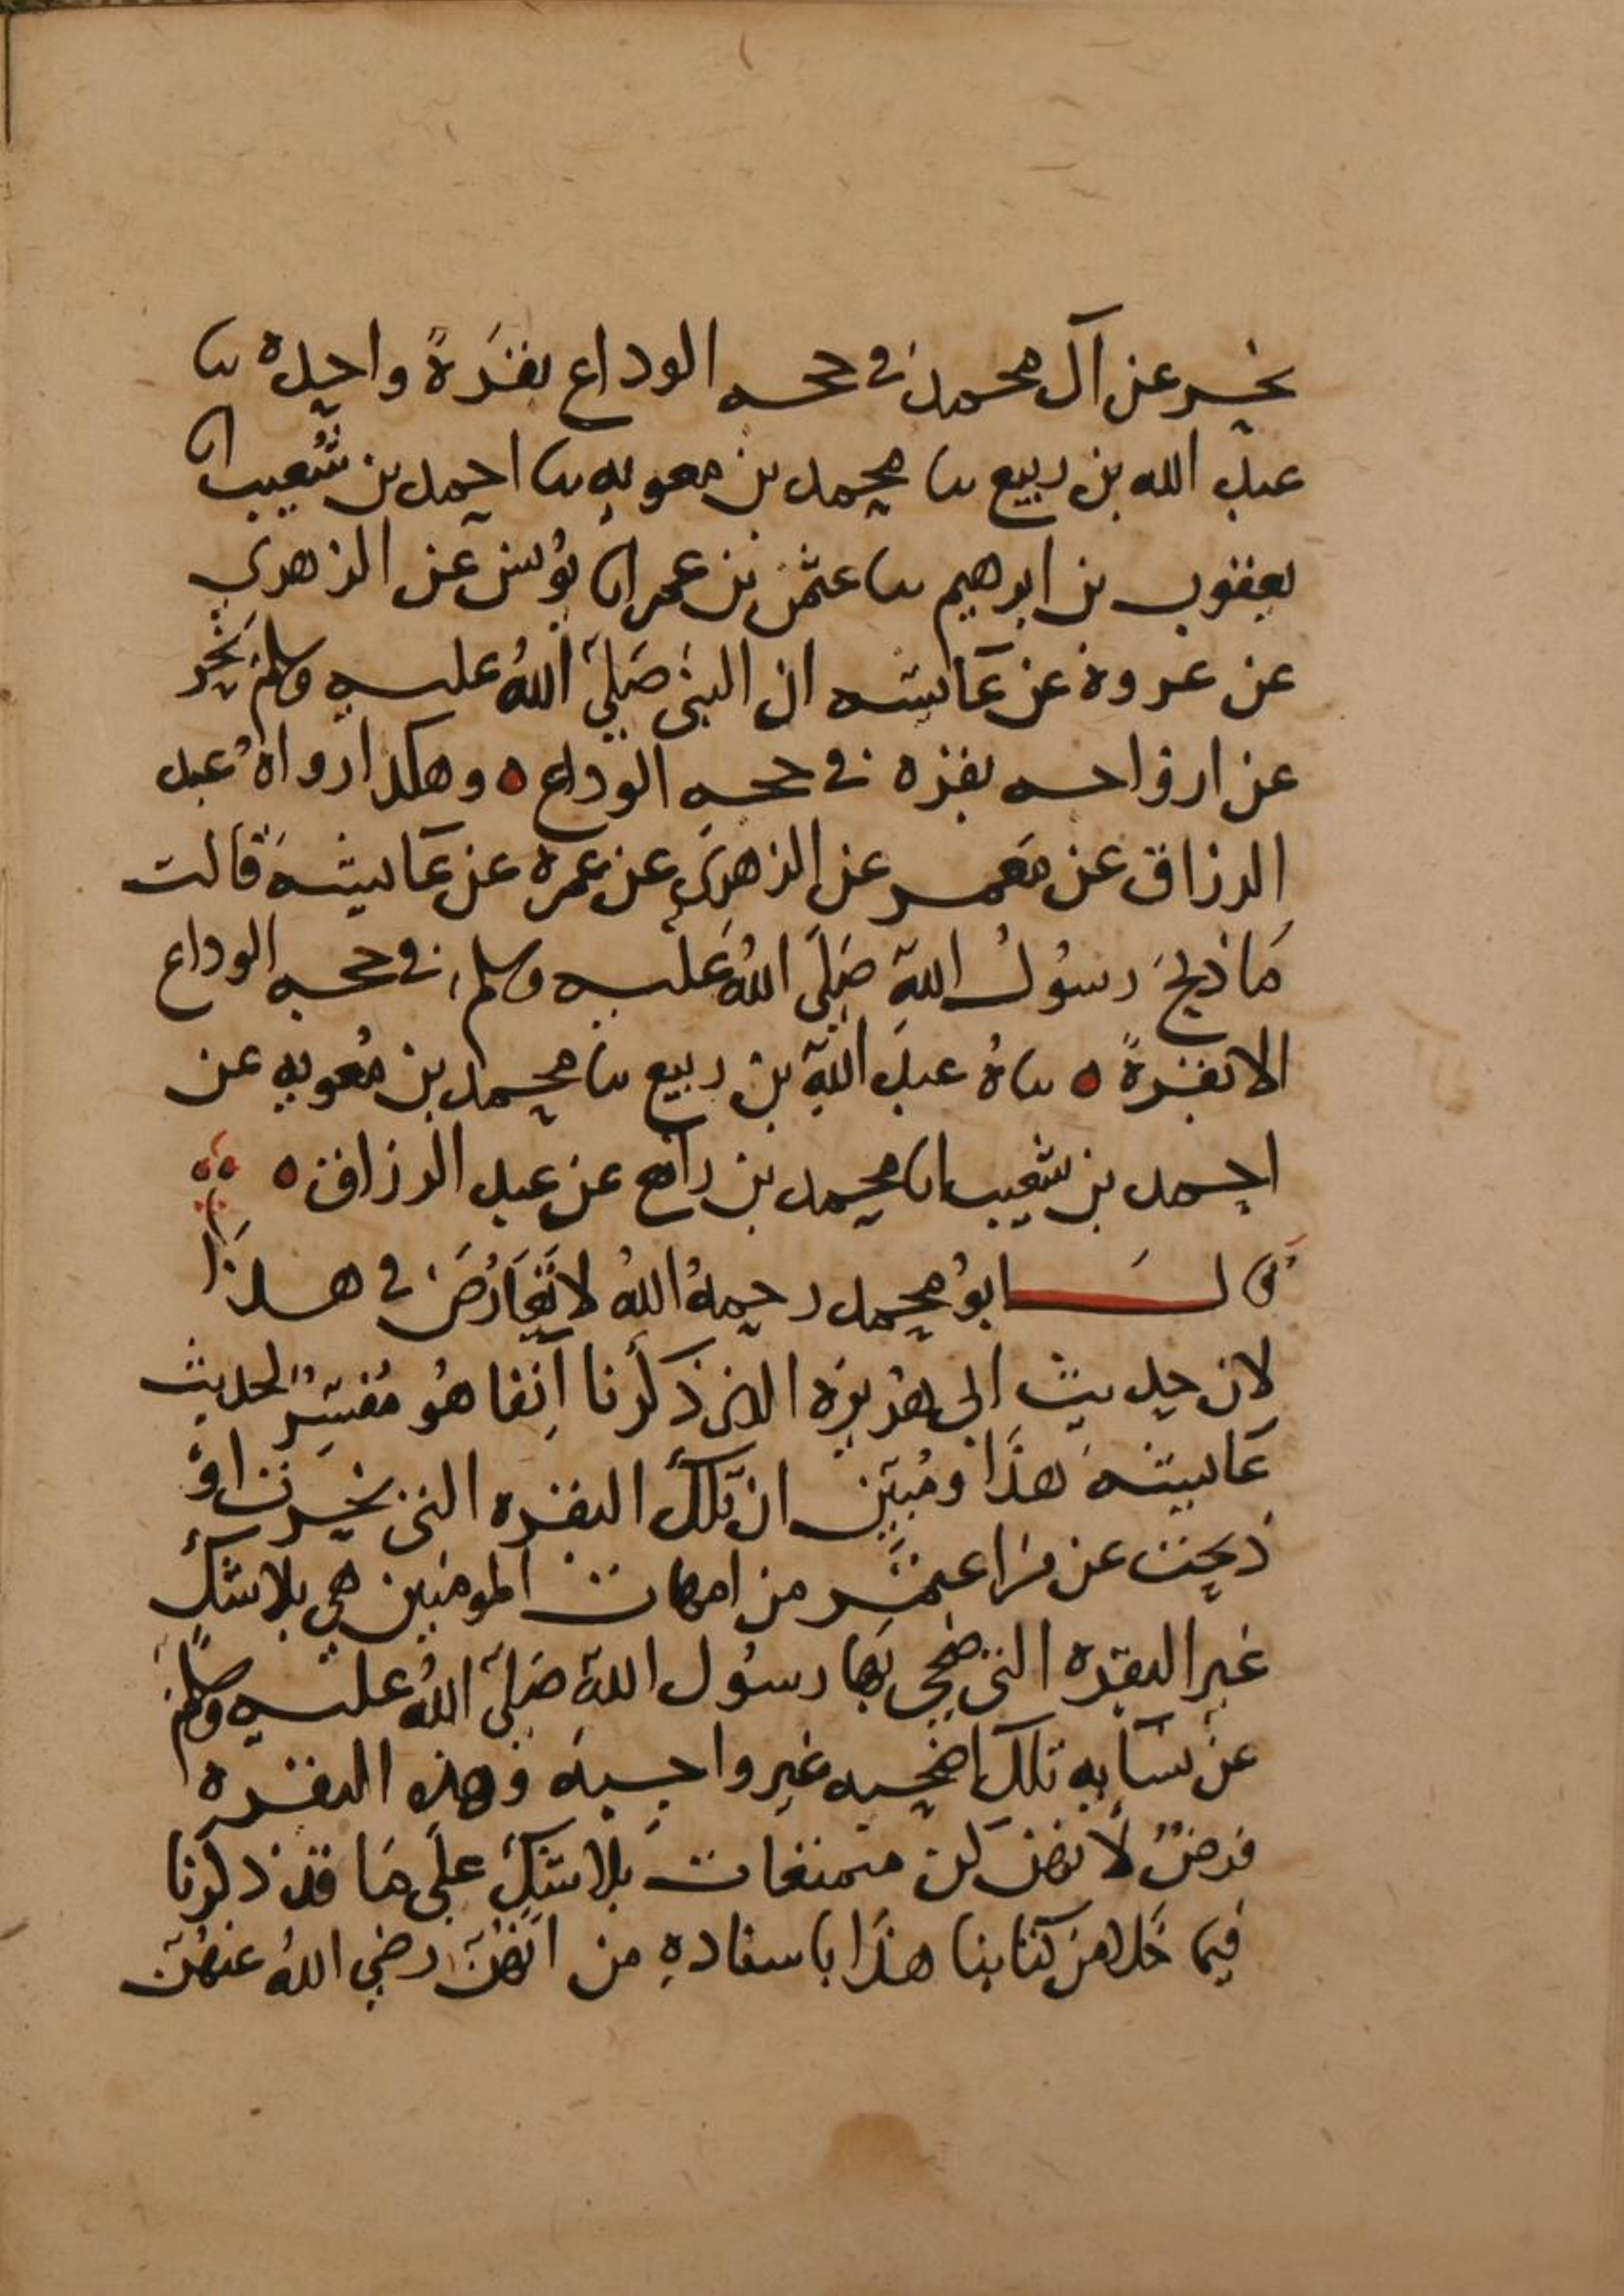 نحر عن آل محمد في حجه الوداع بقرةً واحدة نا
عبد الله بن ربيع نا محمد بن معويه نا احمد بن شعيب انا
يعقوب بن ابرهيم نا عثمن بن عمر انا يونس عن الزهري
عن عروة عن عايشه ان النبي صلي الله عليه وسلم نحر
عن ازواجه بقره في حجه الوداع ه وهكذا رواه عبد
الرزاق عن معمر عن الزهري عن عمرة عن عايشة قالت
ما ذبح رسول الله صلى الله عليه وسلم في حجه الوداع
الا بقرةً ه ناه عبد الله بن ربيع نا محمد بن معويه عن
احمد بن شعيب انا محمد بن رافع عن عبد الرزاق ه
قال ابو محمد رحمه الله لا تعارض في هذا
لان حديث ابي هريرة الذي ذكرنا آنفا هو مفسر لحديث
عايشة هذا ومبين ان تلك البقره التي نحرت او
ذبحت عن من اعتمر من امهات المومنين هي بلا شك
غير البقره التي ضحى بها رسول الله صلى الله عليه وسلم
عن نسايه تلك اضحيه غير واجبة وهذه البقره
فرض لانهن كن متمتعات بلا شك على ما قد ذكرنا
فيما خلا من كتابنا هذا باسناده من انهن رضي الله عنهن